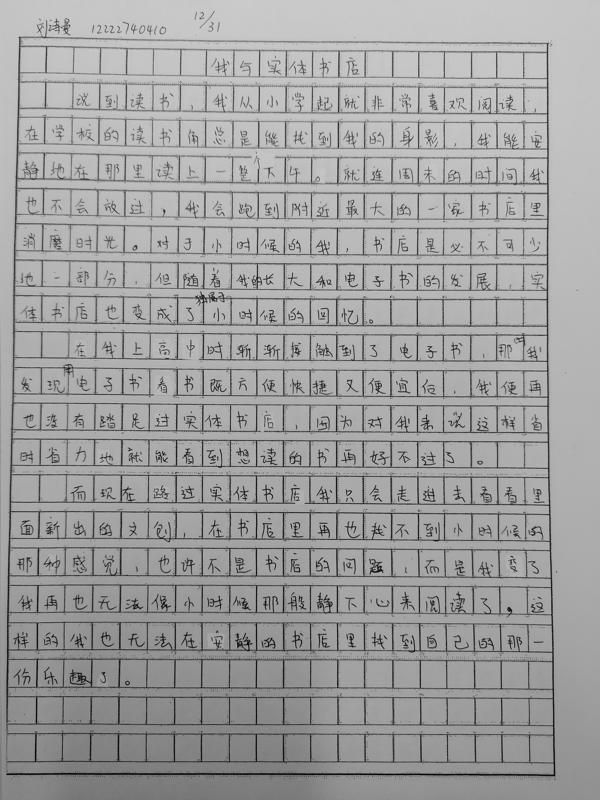 刘诗曼 12222740410 12/31
我与实体书店
说到读书，我从小学起就非常喜欢阅读，
在学校的读书角总是能找到我的身影，我能安
静地在那里读上一整个下午。就连周末的时间我
也不会放过，我会跑到附近最大的一家书店里
消磨时光。对于小时候的我，书店是必不可少
地一部分，但随着我的长大和电子书的发展，实
体书店也变成了独属于小时候的回忆。
在我上高中时渐渐接触到了电子书，那时我
发现用电子书看书既方便快捷又便宜后，我便再
也没有踏足过实体书店，因为对我来说这样省
时省力地就能看到想读的书再好不过了。
而现在路过实体书店我只会走进去看看里
面新出的文创，在书店里再也找不到小时候的
那种感觉，也许不是书店的问题，而是我变了
我再也无法像小时候那般静下心来阅读了，这
样的我也无法在安静的书店里找到自己的那一
份乐趣了。